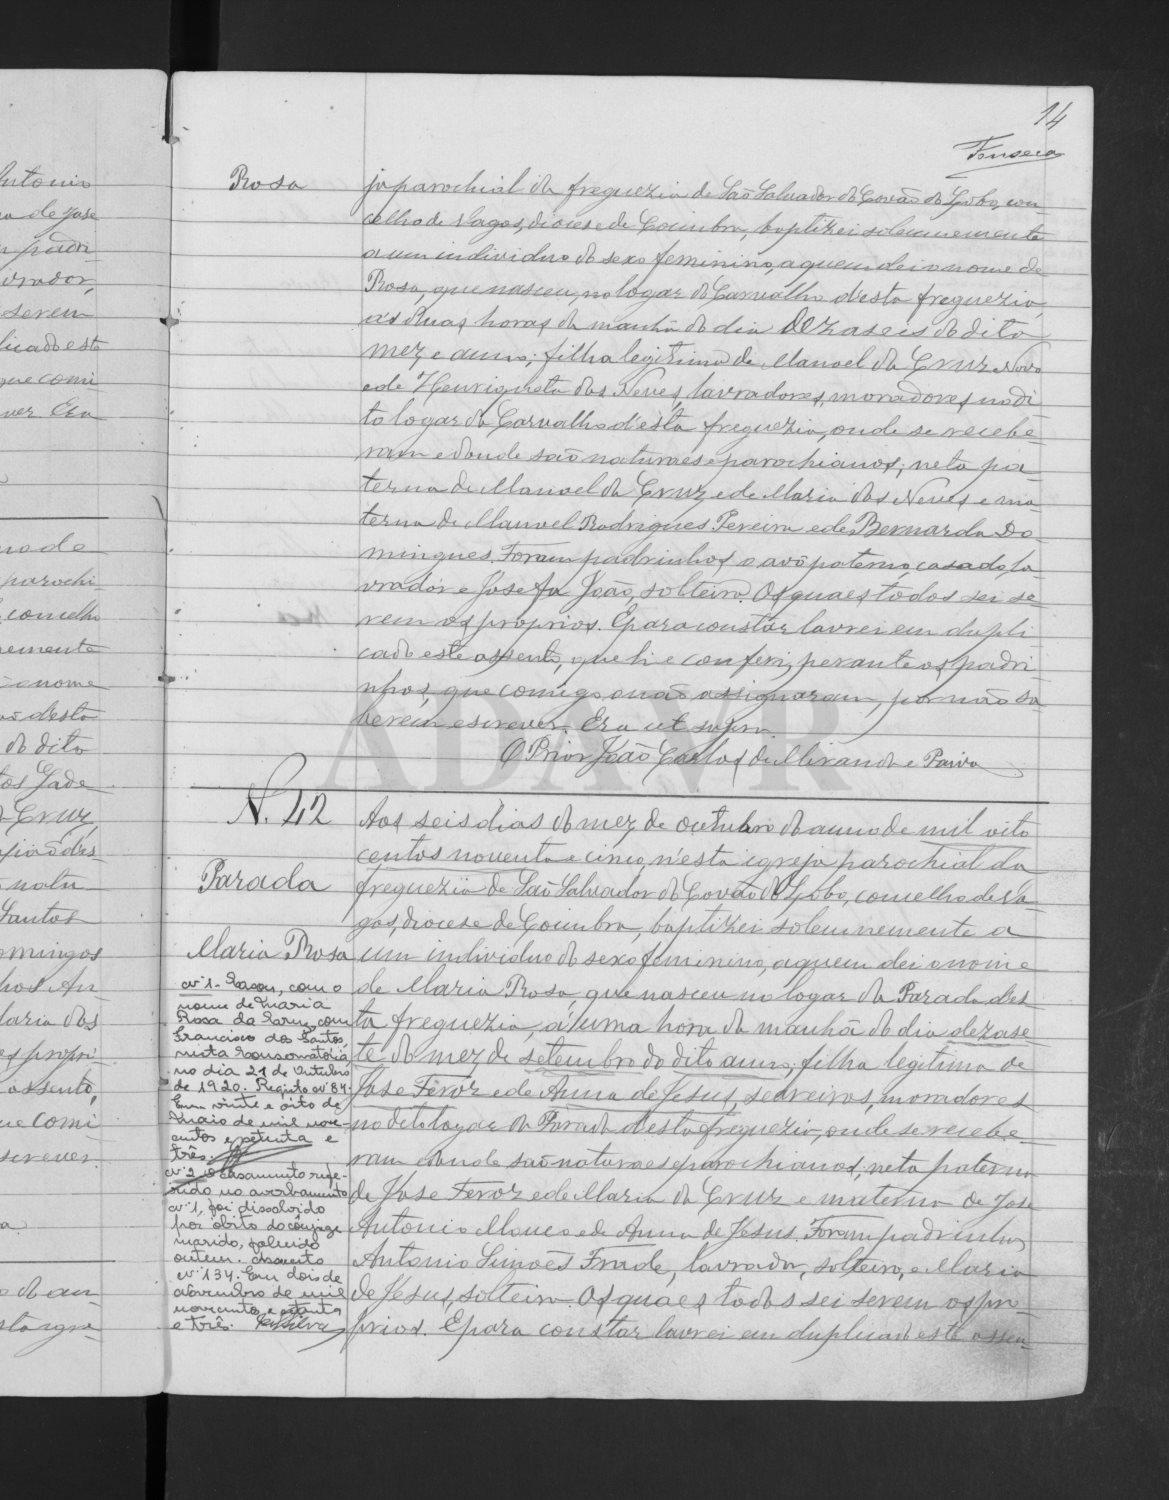 14
Fonseca
Rosa
ja parochial da freguezia de São Salvador do Covão do Lobo, con-
celho de Vagos, diocese de Coimbra, baptizei solemnemente
a um individuo do sexo feminino, a quem dei o nome de
Rosa, que nasceu, no logar do Carvalho d'esta freguezia,
ás duas horas da manhã do dia dezaseis do dito
mez e anno; filha legitima de Manoel da Cruz Novo
e de Henriqueta das Neves, lavradores, moradores no di-
to logar do Carvalho d'esta freguezia, onde se recebe-
ram e donde são naturaes e parochianos; neta pa-
terna de Manoel da Cruz e de Maria das Neves e ma-
terna de Manoel Rodrigues Pereira e de Bernarda Do-
mingues. Foram padrinhos o avô paterno, casado, la-
vrador e Josefa João, solteira. Os quaes todos sei se-
rem os proprios. E para constar lavrei em dupli-
cado este assento, que li e conferi, perante os padri-
nhos, que comigo não assignaram, por não sa-
berem escrever. Era ut supra.
O Prior João Carlos de Miranda e Paiva
N. 42
Parada
Maria Rosa
Aos seis dias do mez de outubro do anno de mil oito
centos noventa e cinco, n'esta igreja parochial da
freguezia de São Salvador do Covão do Lobo, concelho de Va-
gos, diocese de Coimbra, baptizei solemnemente a
um individuo do sexo feminino, a quem dei o nome
de Maria Rosa, que nasceu no logar da Parada des-
ta freguezia, á uma hora da manhã do dia dezase-
te do mez de setembro do dito anno, filha legitima de
José Feroz e de Anna de Jesus, seareiros, moradores
no dito logar da Parada d'esta freguezia, onde se recebe-
ram e donde são naturaes e parochianos; neta paterna
de José Feroz e de Maria da Cruz e materna de José
Antonio Mouco e de Anna de Jesus. Foram padrinhos
Antonio Simões Frade, lavrador, solteiro, e Maria
de Jesus, solteira. Os quaes todos sei serem os pro-
prios. E para constar lavrei em duplicado este assen-
nº 1 - Casou, com o
nome de Maria
Rosa da Cruz, com
Francisco dos Santos,
nesta Conservatória
no dia 21 de Outubro
de 1920. Registo nº 84.
Em vinte e oito de
Maio de mil nove-
centos e setenta e
três.
nº 2 O casamento refe-
rido no averbamento
nº 1, foi dissolvido
por óbito do cônjuge
marido, falecido
ontem. Assento
nº 134. Em dois de
Novembro de mil
novecentos e setenta
e três.
ADAVR
Antonio
de José
padri-
vrador,
serem
licado este
que comi-
ver Era
parochi
concelho
nemente
o nome
desta
do dito
Cruz,
natu-
Santos
omingos
Maria das
propri-
assento,
que comi
screver